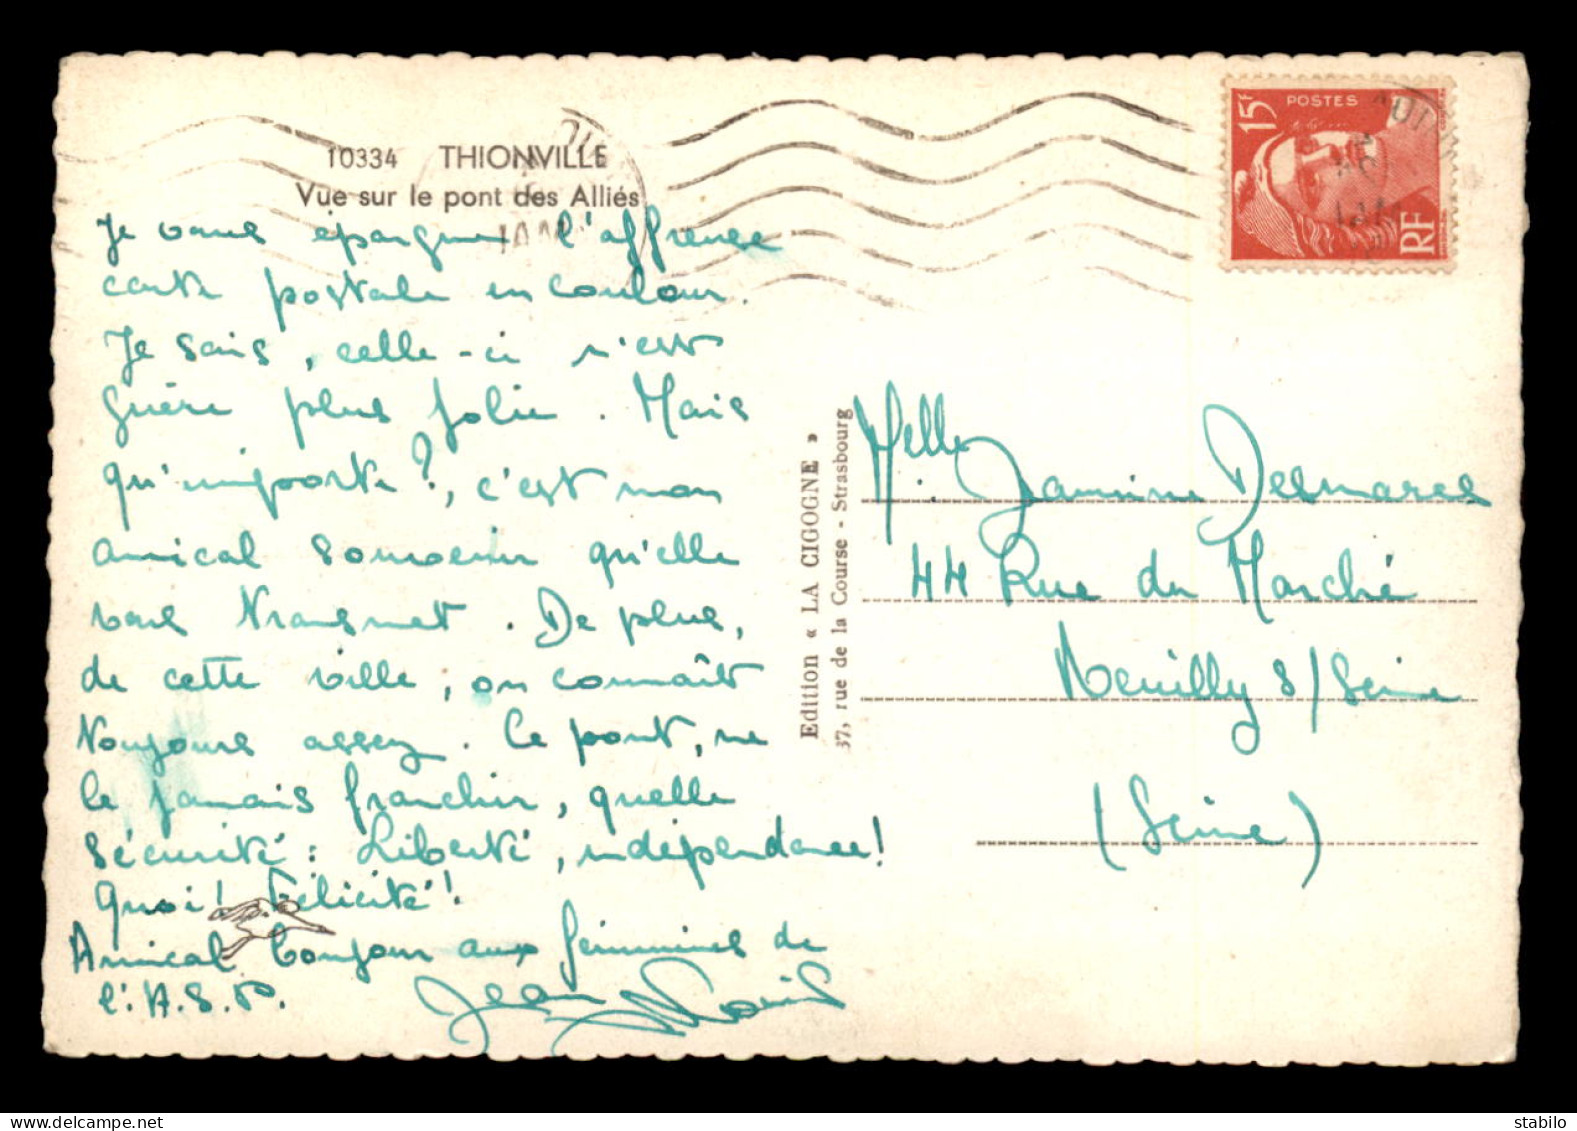 10334 THIONVILLE
Vue sur le pont des Alliés
Je vous épargne l'affreuse
carte postale en couleur.
Je sais, celle-ci n'est
guère plus jolie. Mais
qu'importe?, c'est mon
amical souvenir qu'elle
vous transmet. De plus,
de cette ville, on connaît
toujours assez. Ce pont, ne
le jamais franchir, quelle
sécurité: Liberté, indépendance!
Quoi! Félicité!
Amical bonjour aux féminines de
l'A.S.P.
Jean
Edition « LA CIGOGNE »
37, rue de la Course - Strasbourg
15F POSTES
RF
Melle Jeannine Desmares
44 Rue du Marché
Neuilly s/Seine
(Seine)